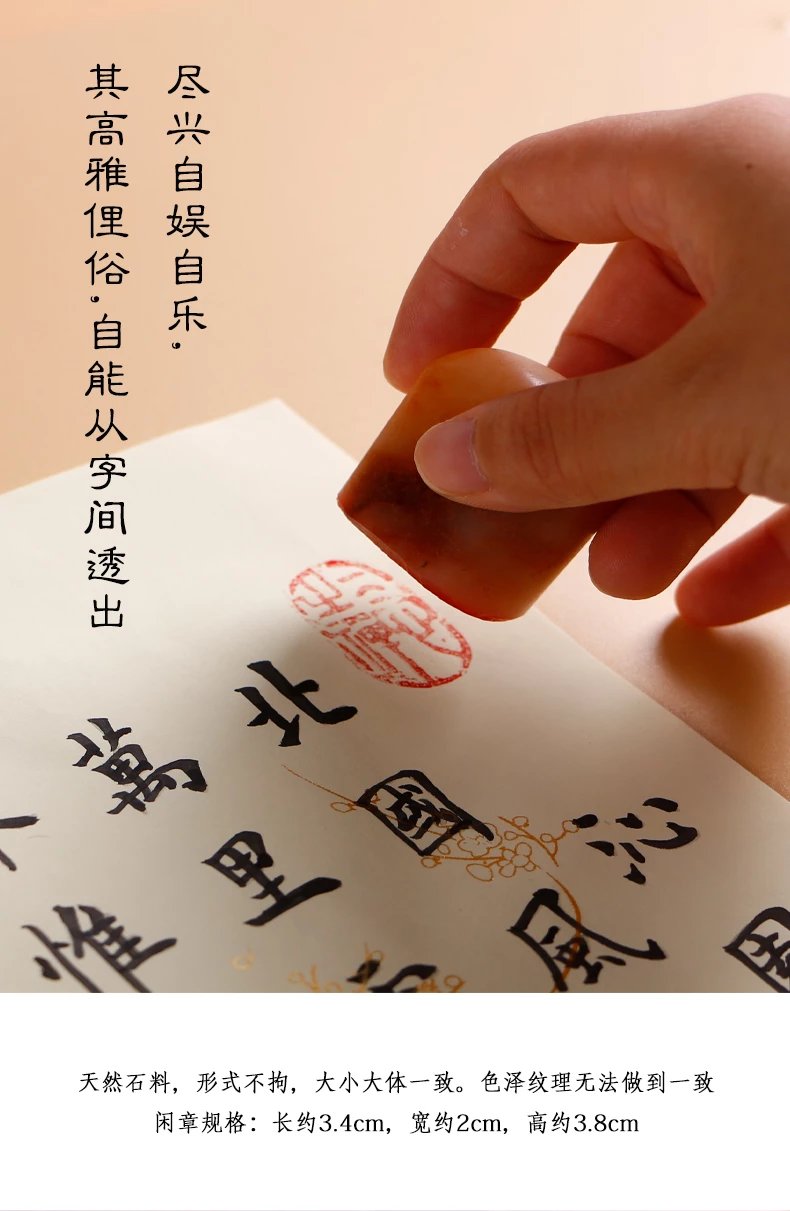 尽兴自娱自乐,
其高雅俚俗,自能从字间透出
沁園
北國風
萬里
惟
天然石料，形式不拘，大小大体一致。色泽纹理无法做到一致
闲章规格：长约3.4cm，宽约2cm，高约3.8cm